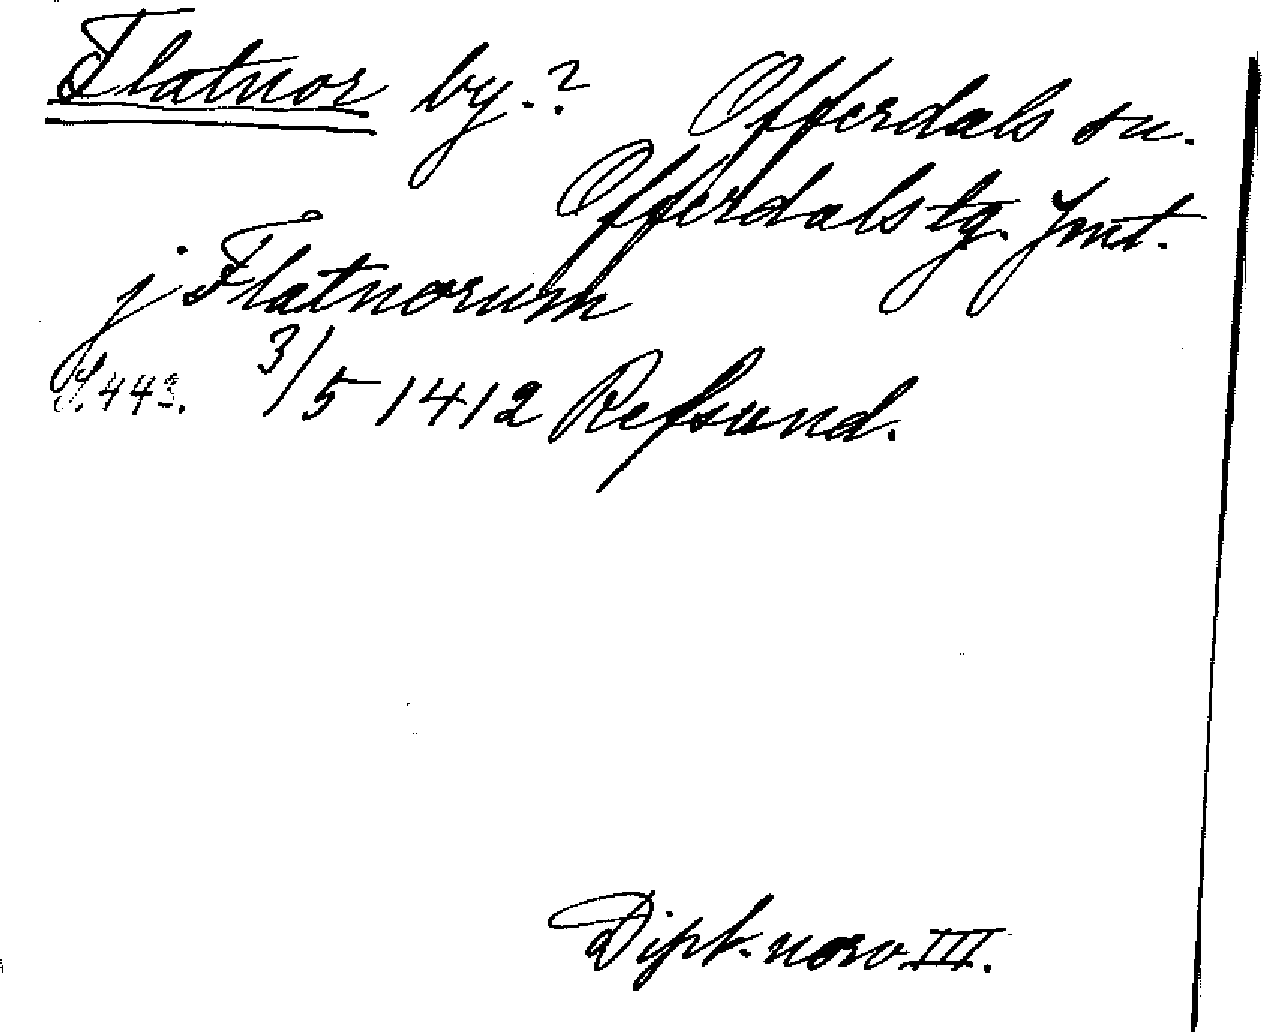 Flatnor by.? Offerdals sn.
Offerdals tg. Jmt.
j Flatnorum
S. 443. 3/5 1412 Refsund.
Dipl. norv. III.